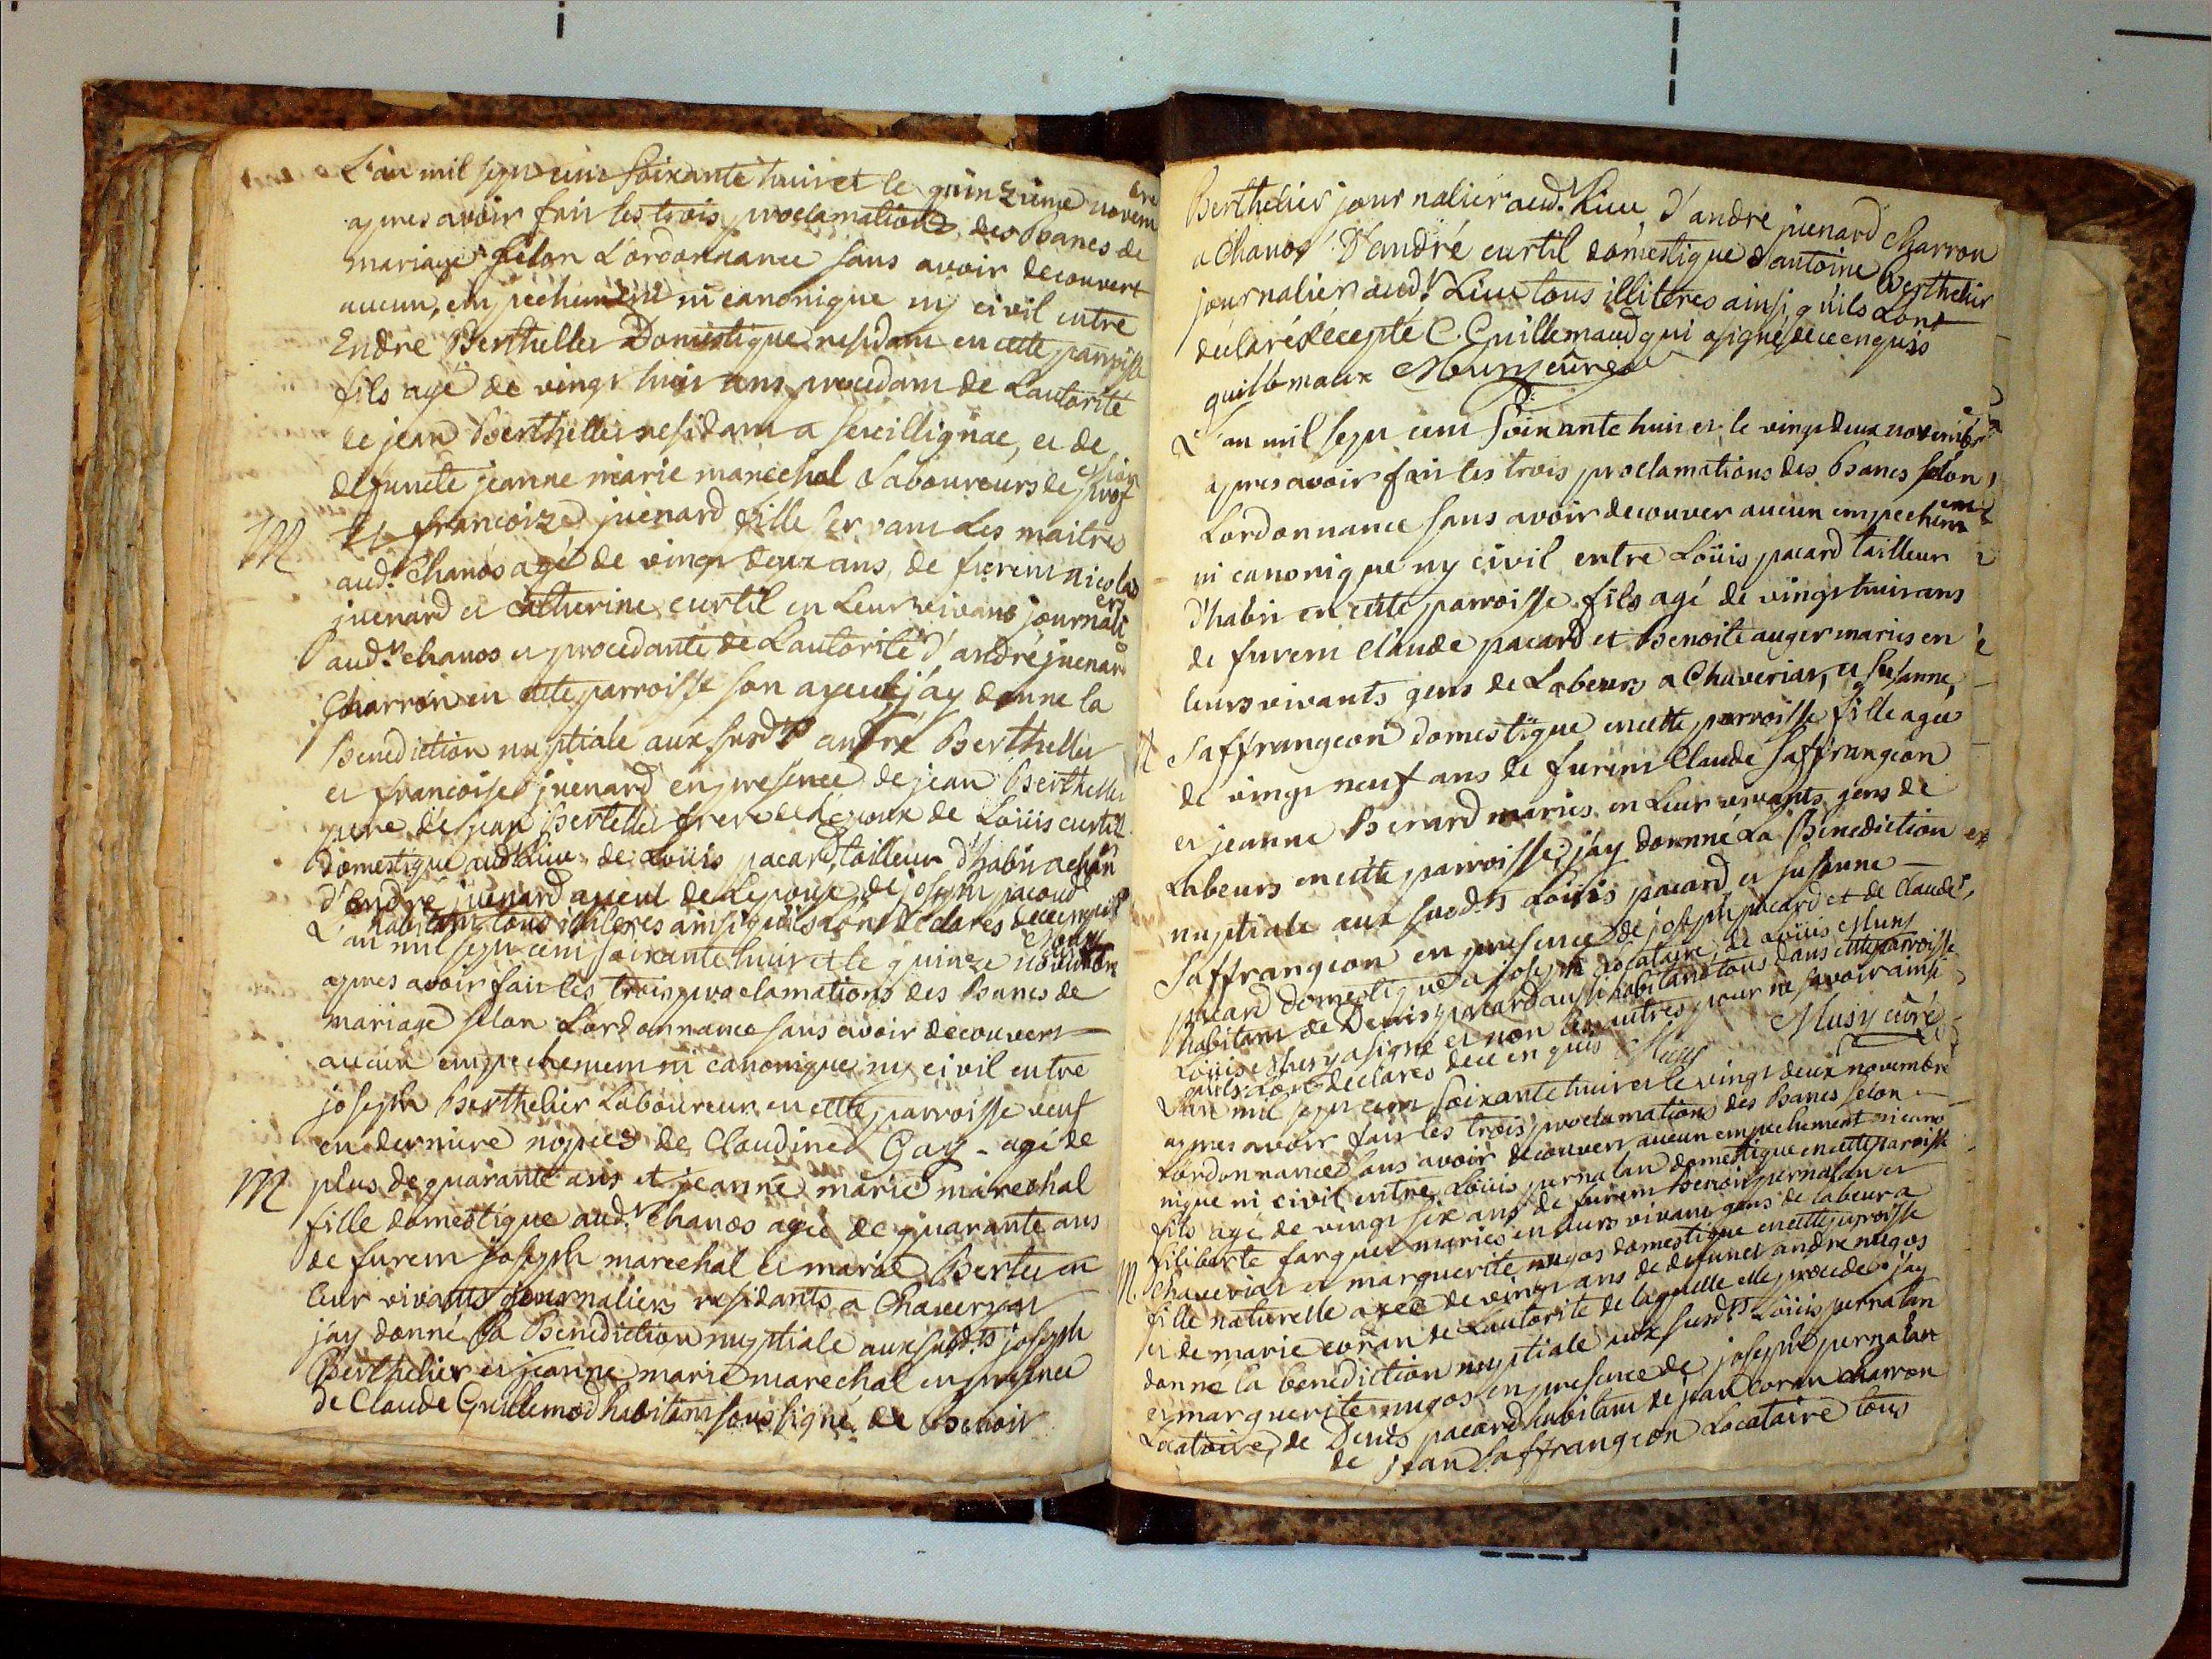 L'an mil sept cent soixante huit et le quinzieme novem
bre
apres avoir fait les trois proclamations des bancs de
mariage selon L'ordonnance sans avoir decouvert
aucun, empechement ni canonique ny civil entre
Endre Berthellier Domestique residant en cette parroisse
fils agé de vingt huit ans procedant de Lautorité
de jean Berthellier residant a sereillignac, et de
defuncte jeanne marie marechal Laboureurs de prof
ession
M Et francoize juenard fille servant Les maitres
aud.t Chanos agé de vingt deux ans de furent nicolas
juenard et catherine curtil en Leur vivans journali
ers
aud.t chanos et procedante de Lautorité d'andré juenard
Charron en cette parroisse son ayeul, j'ay donne la
Benediction nuptiale aux susd.ts andre Berthellier
et francoise juenard en presence de jean Berthellier
pere de jean Bertellier frere de Lépoux de Loüis curtil
domestique aud Lieu de Loüis pacard tailleur d'habit a chan
d'endré juenard ayeul de Lépouse de joseph pacoud
habitant tous illiteres ainsi quils lont déclarés de ce enquis
Musy
L'an mil sept cent soixante huit et le quinze novembre
apres avoir fait les trois proclamations des bancs de
mariage selon Lordonnance sans avoir decouvert
aucun empechement ni canonique ny civil entre
joseph Berthelier Laboureur en cette parroisse veuf
en derniere nopces de Claudine Gay - agé de
M plus de quarante ans et jeanne marie marechal
fille domestique aud.t Chanos agée de quarante ans
de furent joseph marechal et marie Bertet en
leur vivants journaliers residants a Chaveryat
j'ay donné la Benediction nuptiale aux susd.ts joseph
Berthelier et jeanne marie marechal en presence
de Claude Guillemod habitant soussigné de Benoit
Berthelier journalier aud.t Lieu, d'andre juenard charron
a Chanos D'andré curtil domestique d'antoine Berthelier
journalier aud.t Lieu tous illiteres ainsi, qu'ils Lont
declaré écepté C. Guillemaud qui a signé de ce enquis
guillemaux Musy curé
L'an mil sept cent soixante huit et le vingt deux novembre
apres avoir fait les trois proclamations des bancs selon
Lordonnance sans avoir decouver aucun empechem
ent
ni canonique ny civil entre Loüis pacard tailleur
d'habit en cette parroisse fils agé de vingt huit ans
de furent Claude pacard et Benoite auger mariés en
leurs vivants gens de Labeurs a Chaveriat, et susanne
Saffrangeon domestique en cette parroisse fille agée
de vingt neuf ans de furent Claude Saffrangeon
et jeanne Berard mariés en Leur vivants gens de
Labeurs en cette parroisse, j'ay donné La Benediction
nuptiale aux susd.ts Loüis pacard et susanne
Saffrangeon en presence de joseph pacard et de Claude
pacard domestique a joseph Locataire, de Loüis Musy
habitant de Denis pacard aussi habitant tous dans cette parroisse
Loüis Musy a signé et non les autres pour ne savoir ainsi
quils Lont declarés de ce enquis Musy Musy curé
L'an mil sept cent soixante huit et le vingt deux novembre
apres avoir fait les trois proclamations des bancs selon
Lordonnance sans avoir decouvert aucun empechement ni cano
nique ni civil entre Loüis pernatan domestique en cette paroisse
fils agé de vingt six ans de furent Benoit pernatan et
filiberte farguet mariés en leurs vivant gens de labeur a
M Chaveriat et marguerite nugos domestique en cette parroisse
fille naturelle agée de vingt ans de defunct andre nugos
et de marie coran de Lautorité de laquelle elle procede j'ay
donne la benediction nuptiale aux susd.ts Loüis pernatan
et marguerite nugos en presence de joseph pernatan
Locataire, de Denis pacard habitant de jean coran charron
de jean Saffrangeon Locataire tous